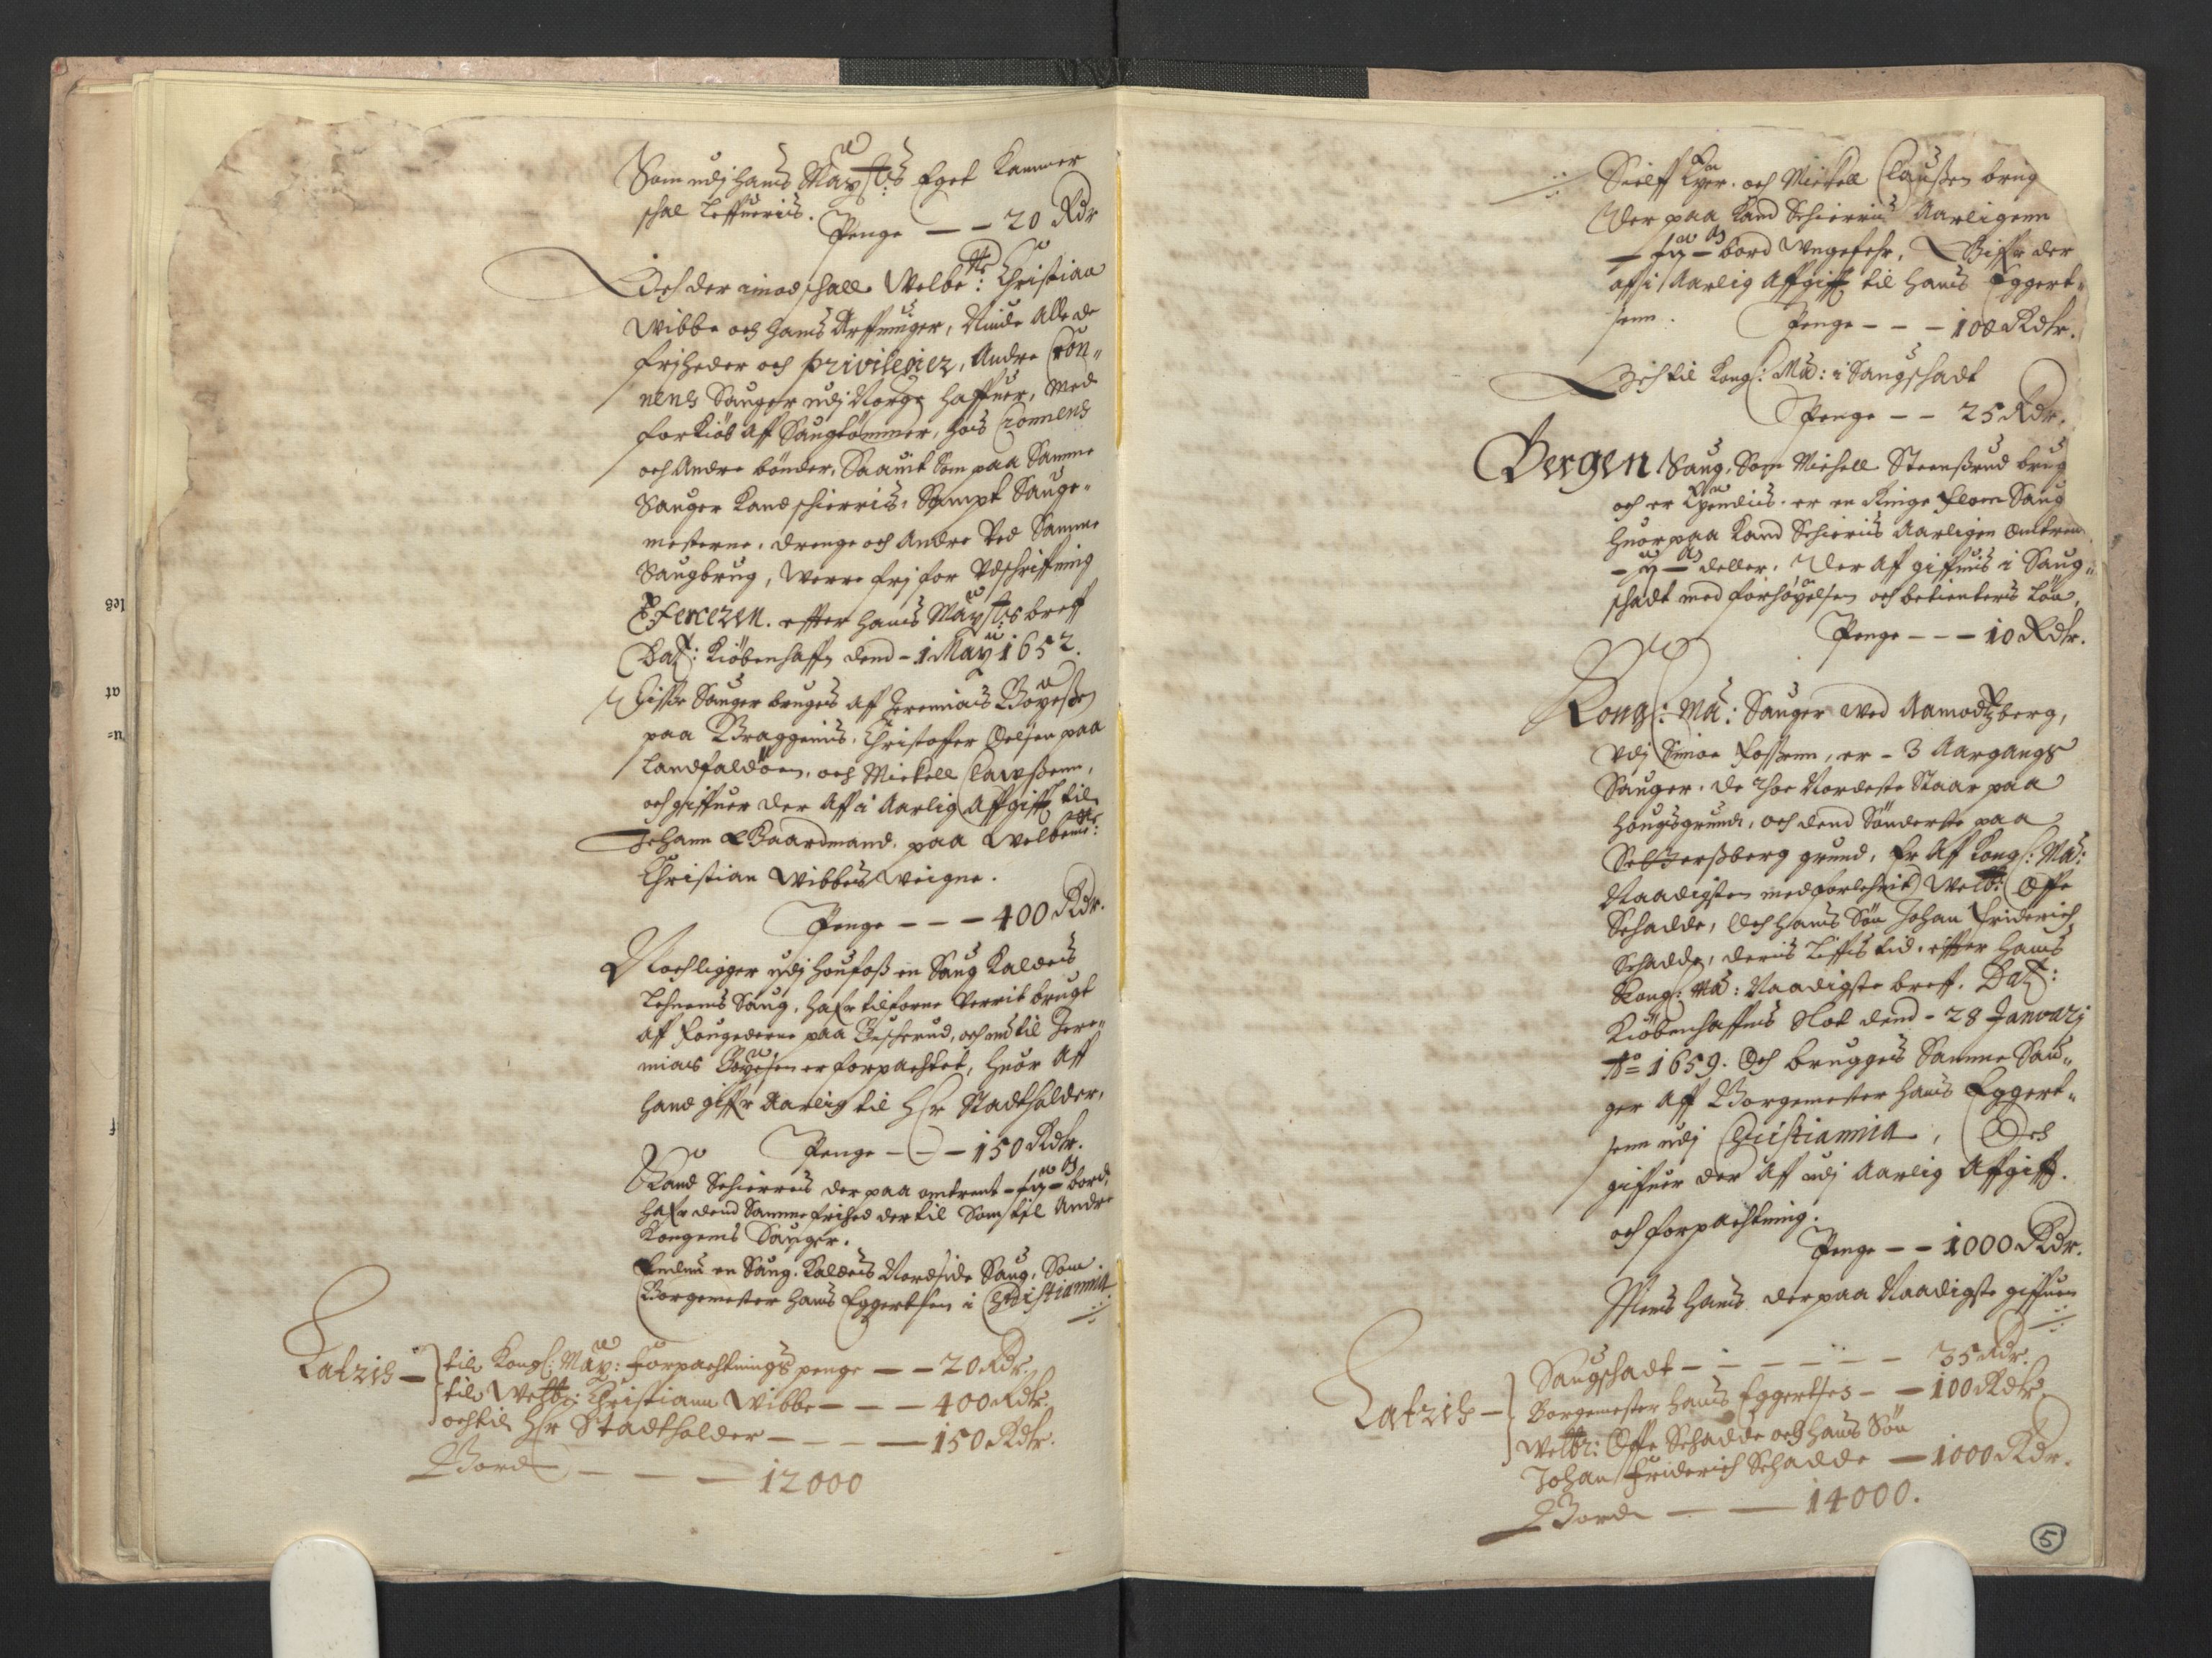 Som udj hans Maÿ:tts Eget Kammer
schal leffueris.
Penge — — 20 Rdr
Och der imod schall Welbr: Christian
Wibbe och hans Arffuinger, Niude Alle de
friheder och privilegier, Andre Cron„
nens Sauger udj Norge haffuer, Med
forkiøb aff Saugtømmer, hos Cronnens
och Andre bønder, Saauit Som paa Samme
Sauger Kand schierris, Sampt Sauge„
mesterne, drenge och Andre Ved Samme
Saugbrug, Werre frj for Vdschriffning
effter Hans Maÿ:tts breff
Dat: Kiøbenhaffn dend – 1 Maÿ 1652.
Disse Sauger bruges aff Jeremias Boÿesen
paa Braggenis, Christoffer Oelsen paa
Landfaldöen, och Mickell Clausenn,
och giffuer der Aff i Aarlig Affgifft til
Johann Gaardmand, paa Welbemt:
Christian Wibbes Weigne.
Penge – – – 400 Rdr.
Noch ligger udj Honfoss en Saug Kaldes
Lehnens Saug, haffr tilforne Verrit brugt
aff fougederne paa Buscherud, och nu til Jere„
mias Boÿesen er forpachtet, huor Aff
hand giffr Aarlig til Hr Stadtholder,
Penge – – – 150 Rdr.
Kand Schierres der paa omtrent – bord,
haffr dend Samme frihed dertil Som til Andre
Kongens Sauger.
Endnu en Saug, Kaldes Nordside Saug, Som
Borgemester Hans Eggertsen i Christiannia
Latris — til Kongl: Maÿ: Forpachtnings penge — — 20 Rdr.
til Welbr: Christiann Wibbe — — — 400 Rdr.
och til Hr Stadtholder — — — — 150 Rdr.
Bord — — — 12000
Sielff och Mickell Claussen brug
Der paa Kand Schierris Aarligenn
bord Ungefehr, Giffr der
aff i Aarlig Affgifft til Hans Eggert„
senn. Penge – – – 100 Rdr.
Och til Kongl: Ma: i Saugschadt
Penge – – 25 Rdr.
Bergen Saug, Som Michell Steensrud brug
och er er en Ringe flom Saug
huor paa Kand Schieris Aarligen Omtrent
deller, Der Aff giffuis i Saug„
schadt med forhøÿelsen och betienters løn,
Penge – – – 10 Rdr.
Kongl: Ma: Sauger Wed Aamodtzberg,
Udj Simoe Fossenn, er – 3 Aargangs
Sauger. de Thoe Nordeste Staar paa
Hougsgrund, och dend Sönderste paa
grund, Er Aff Kongl: Ma:
Naadigsten med forlehnit Welb: Offe
Schadde, Och Hans Søn Johan Friderich
Schadde, deris Liffs tid, effter Hans
Kongl: Ma: Naadigste breff. Dat:
Kiöbenhaffns Slot dend – 28 Januarj
Ao 1659. Och brugges Samme Sau„
ger Aff Borgemester Hans Eggert„
senn udj Christiannia, Och
gifuer der Af udj Aarlig Affgifft.
och forpachtning.
Penge – – 1000 Rdr.
Mens Hans der paa Naadigste giffuen
Latris — Saugschadt — — — — — 35 Rdr.
Borgemester Hans Eggertsen — — 100 Rdr.
Welbr: Offe Schadde och Hans Søn
Johan Friderich Schadde — 1000 Rdr.
Bord — — 14000.
5